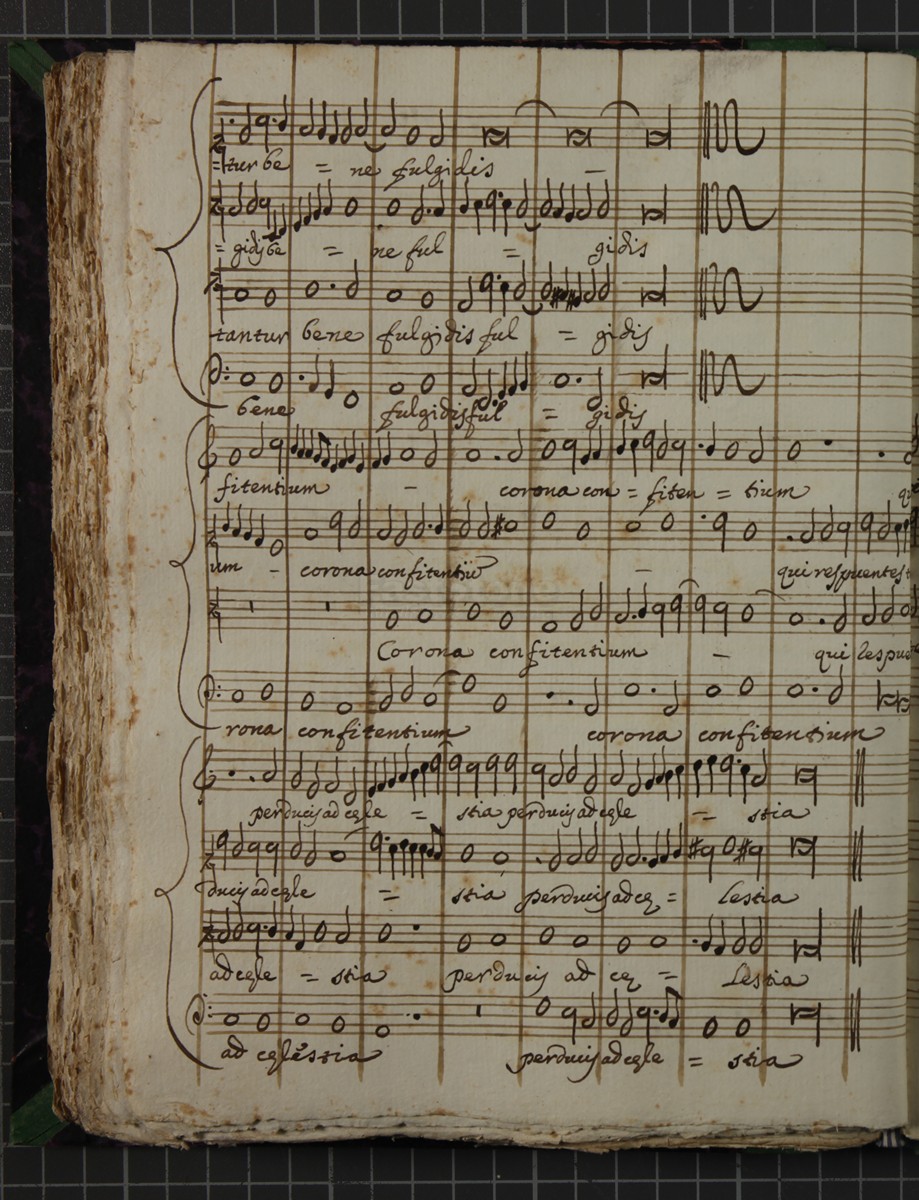 =tur be = ne fulgidis –
= gidis be = ne ful = gidis
tantur bene fulgidis ful = gidis
bene fulgidis ful = gidis
fitentium – corona con = fiten = tium qui
um – corona confitentiũ – qui respuentes
Corona confitentium – qui respue
rona confitentium corona confitentium
perducis ad cęle = stia perducis ad cęle = stia
ducis ad cęle = stia perducis ad cę = lestia
ad cęle = stia perducis ad cę = lestia
ad cęlestia perducis ad cęle = stia